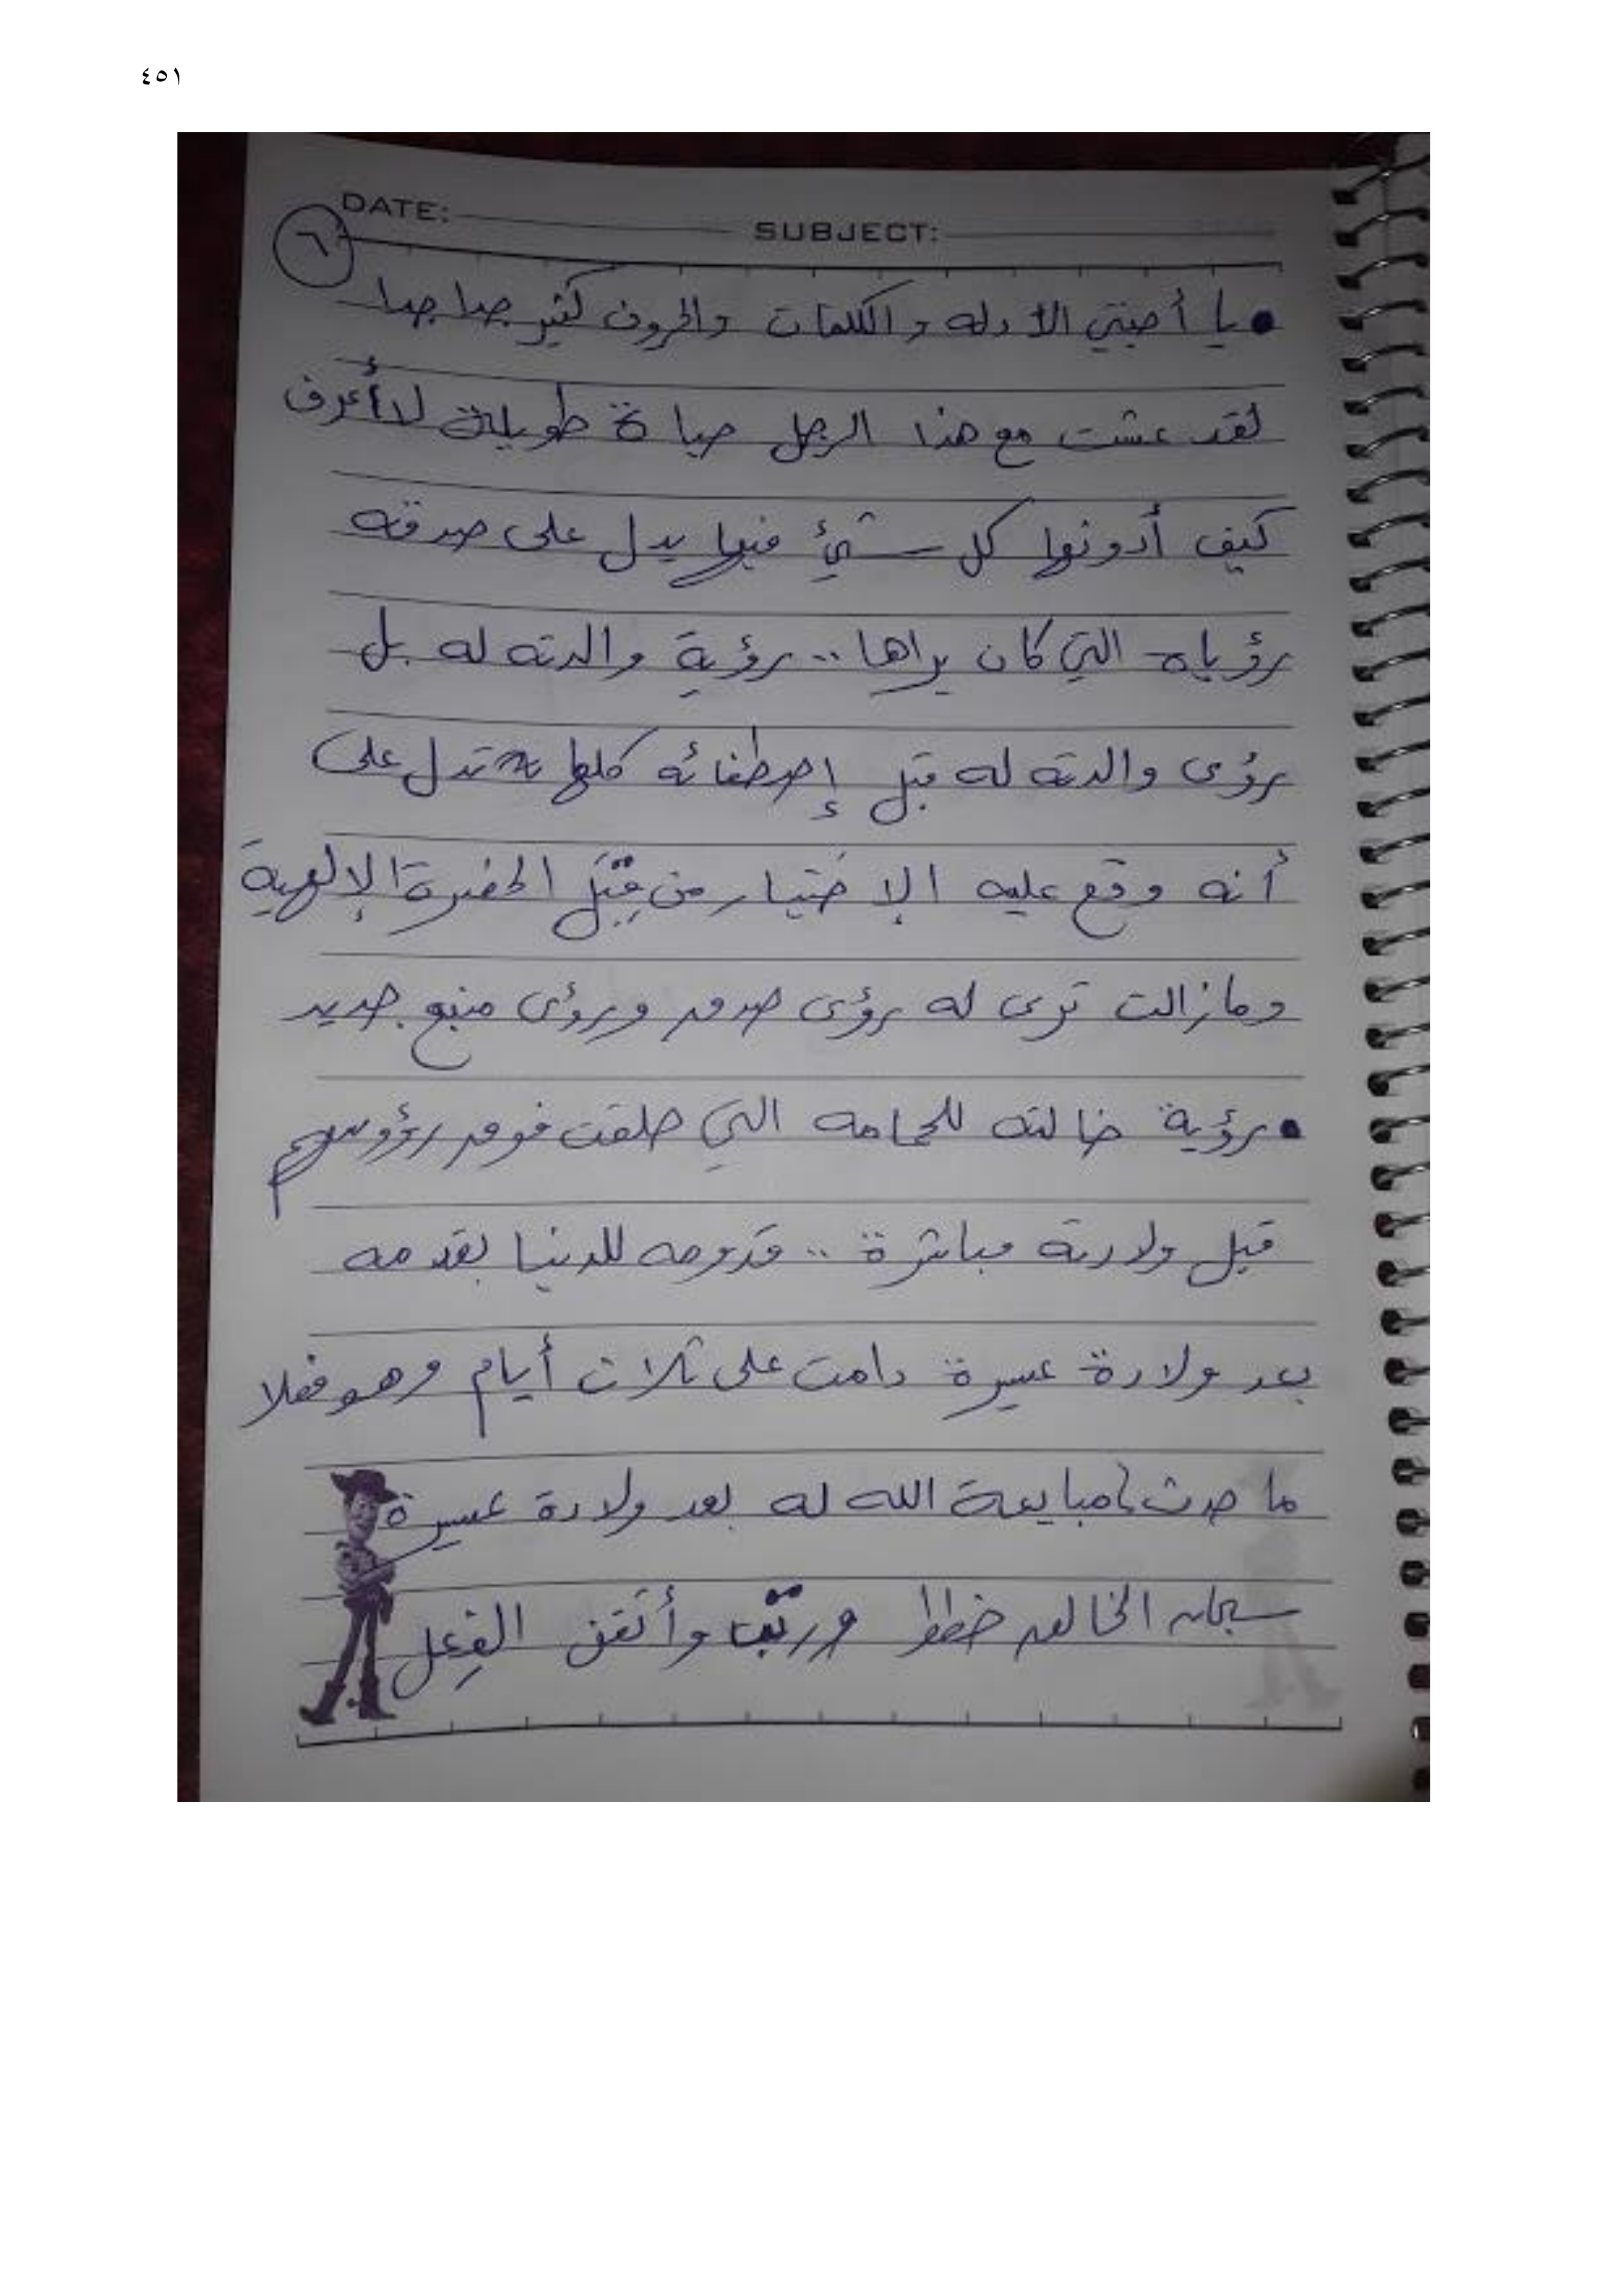 ٤٥١
DATE: SUBJECT:
٦
● يا أحبتي الادله والكلمات والحروف كثير جدا جدا
لقد عشت مع هذا الرجل حياة طويلة لا أعرف
كيف أدونها كل شيئ فيها يدل على صدقه
رؤياه التي كان يراها .. رؤية والدته له بل
رؤى والدته له قبل إصطفائه كلها تدل على
أنه وقع عليه الإختيار من قِبَل الحضرة الإلهية
ومازالت ترى له رؤى صدق ورؤى منبع جديد
● رؤية خالته للحمامه التي حلقت فوق رؤوسهم
قبل ولادته مباشرة .. قدومه للدنيا بقدمه
بعد ولادة عسيرة دامت على ثلاث أيام وهو فعلا
ما حدث مبايعة الله له بعد ولادة عسيرة
سبحان الخالق خطط ورتّب وأتقن الفِعل